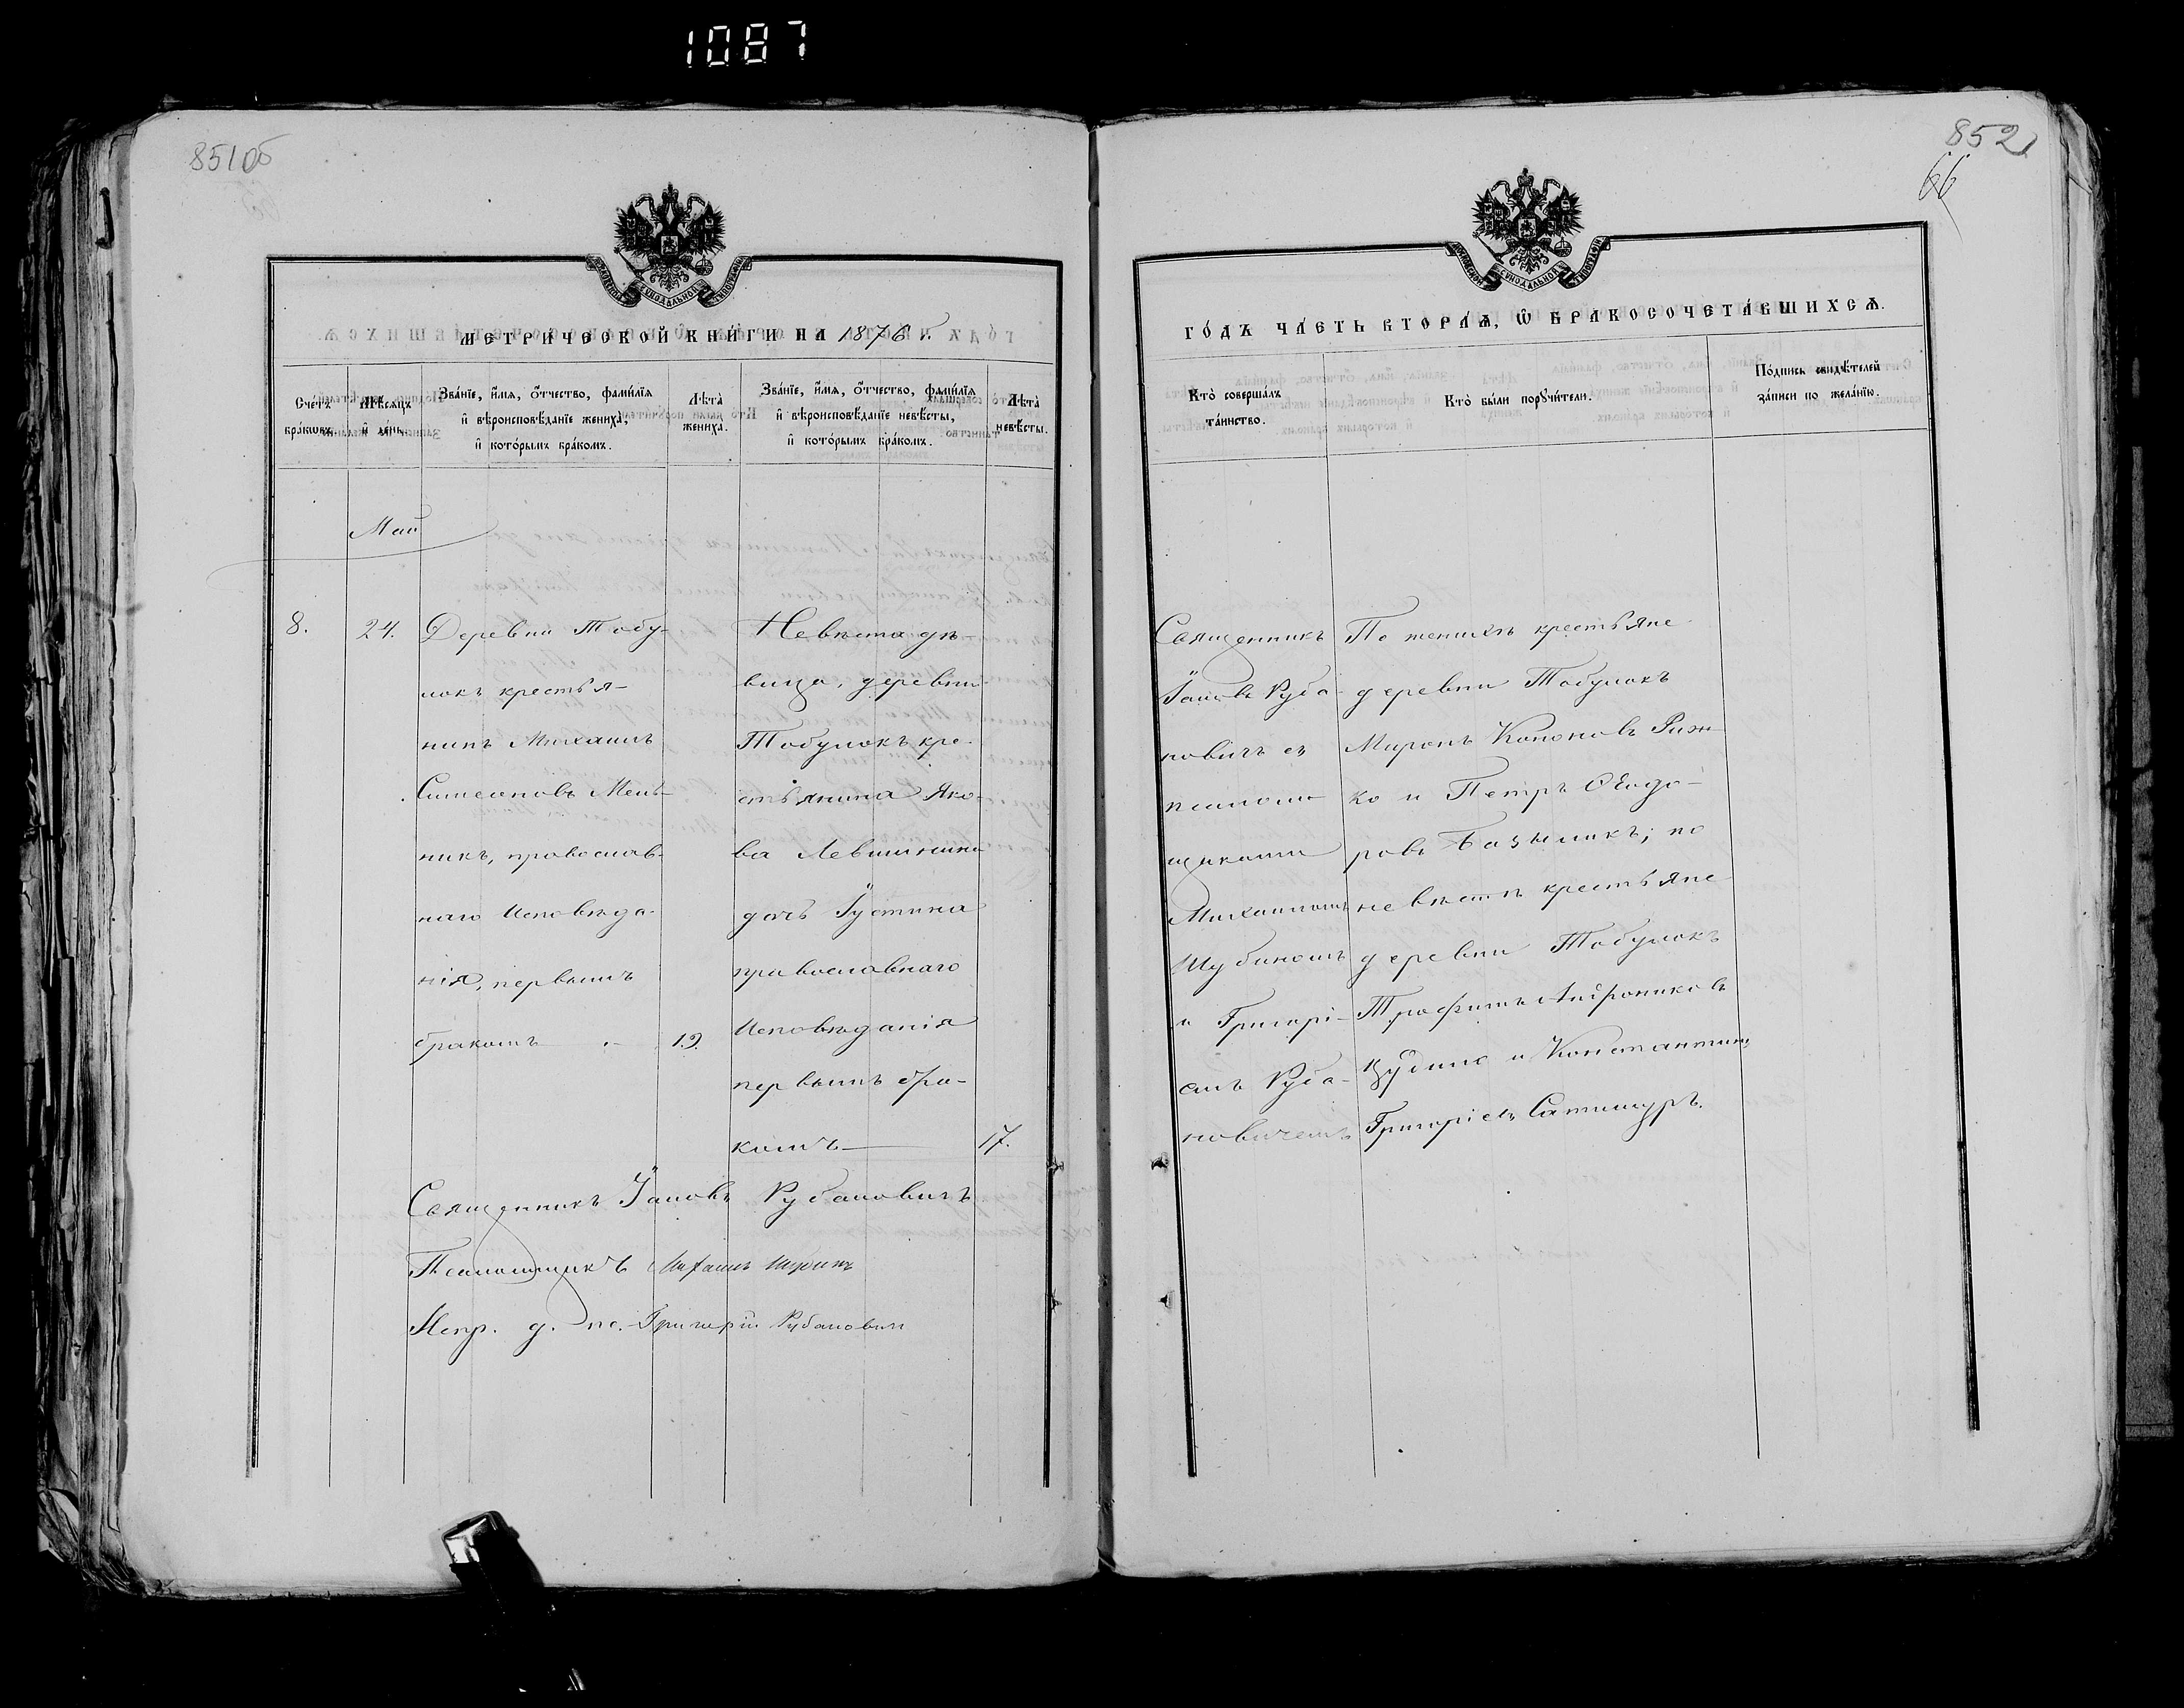 1087
851об
852
66
МЕТРИ́ЧЕСКОЙ КНИ́ГИ НА 1876 г.
Сче́тъ бра́кѡвъ.
Мѣ́сяцъ и҆ де́нь.
Зва́нїе, и҆́мѧ, ѻ҆́тчество, фами́лїѧ и҆ вѣроисповѣ́данїе жениха̀, и҆ кото́рымъ бра́комъ.
Лѣ́та жениха̀.
Зва́нїе, и҆́мѧ, ѻ҆́тчество, фами́лїѧ и҆ вѣроисповѣ́данїе невѣ́сты, и҆ кото́рымъ бра́комъ.
Лѣ́та невѣ́сты.
Май
8.
24.
Деревни Тобу-
локъ крестья-
нинъ Михаилъ
Симеоновъ Мель-
никъ, православ-
наго Исповѣда-
нія, первымъ
бракомъ
19.
Невѣста дѣ-
вица, деревни
Тобулокъ кре-
стьянина Яко-
ва
дочь Іустина
православнаго
Исповѣданія
первымъ бра-
комъ
17.
Священникъ Іаковъ Рубановичъ
Псаломщикъ Михаилъ Шубинъ
Григорій Рубанович
ГО́ДЪ ЧА́СТЬ ВТОРА́Ѧ, Ѡ҆ БРАКОСОЧЕТА́ВШИХСѦ.
Кто̀ соверша́лъ та́инство.
Кто̀ бы́ли порꙋчи́тели.
По́дпись свидѣ́телей за́писи по жела́нїю.
Священникъ
Іаковъ Руба-
новичъ съ
псалом-
щиками
Михаиломъ
Шубиномъ
и Григорі-
емъ Руба-
новичемъ
По женихѣ крестьяне
деревни Тобулокъ
Миронъ Кононовъ Риж-
ко и Петръ Ѳеодо-
ровъ Базыликъ; по
невѣстѣ крестьяне
деревни Тобулокъ
Трофимъ Андрониковъ
и Константинъ
Григоріевъ